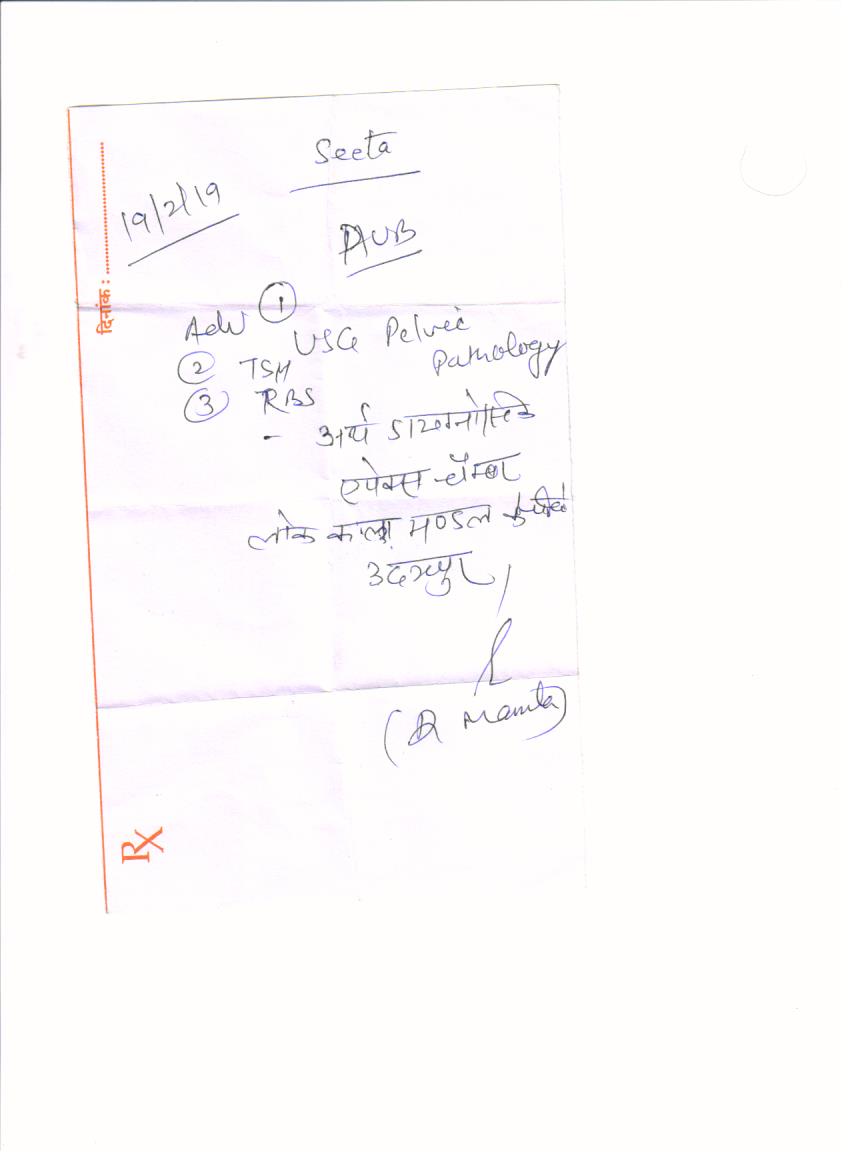 Seeta
19/2/19
AUB
Adv ①
USG Pelvic
Pathology
② TSH
③ RBS
- अर्थ डायग्नोस्टिक
एपेक्स चैम्बर
लोक कला मण्डल के
उदयपुर
(Dr Mamta)
दिनांक :
Rx